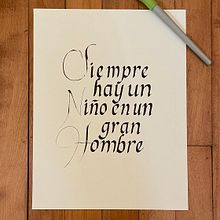 Siempre
hay un
Niño en un
gran
Hombre